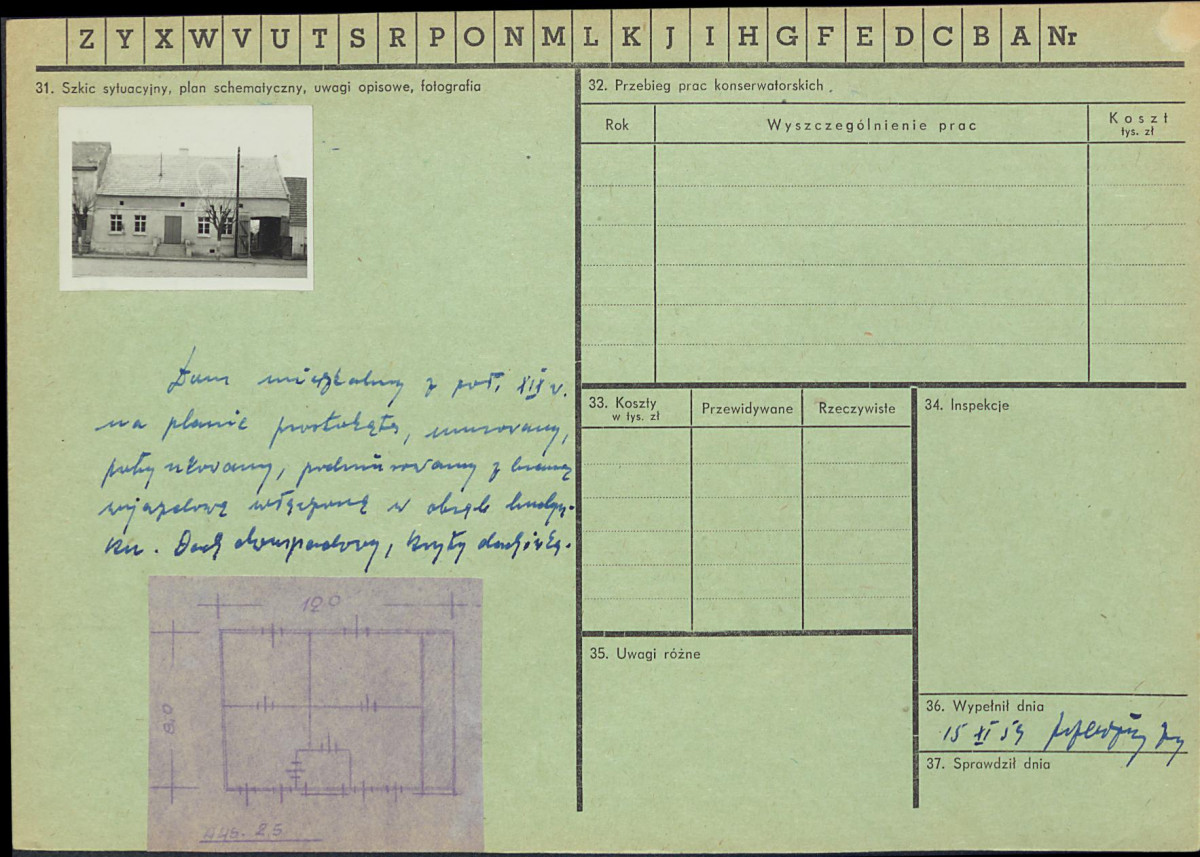 Z Y X W V U T S R P O N M L K J I H G F E D C B A Nr
31. Szkic sytuacyjny, plan schematyczny, uwagi opisowe, fotografia
Dom mieszkalny z poł. XIX w.
na planie prostokąta, murowany,
potynkowany, podmurowany z bramą
wjazdową włączoną w obręb budyn-
ku. Dach dwuspadowy, kryty dachówką.
120
8,0
Wys. 2,5
32. Przebieg prac konserwatorskich
Rok Wyszczególnienie prac Koszt
tys. zł
33. Koszty
w tys. zł
Przewidywane Rzeczywiste
34. Inspekcje
35. Uwagi różne
36. Wypełnił dnia
15 XI 59
37. Sprawdził dnia